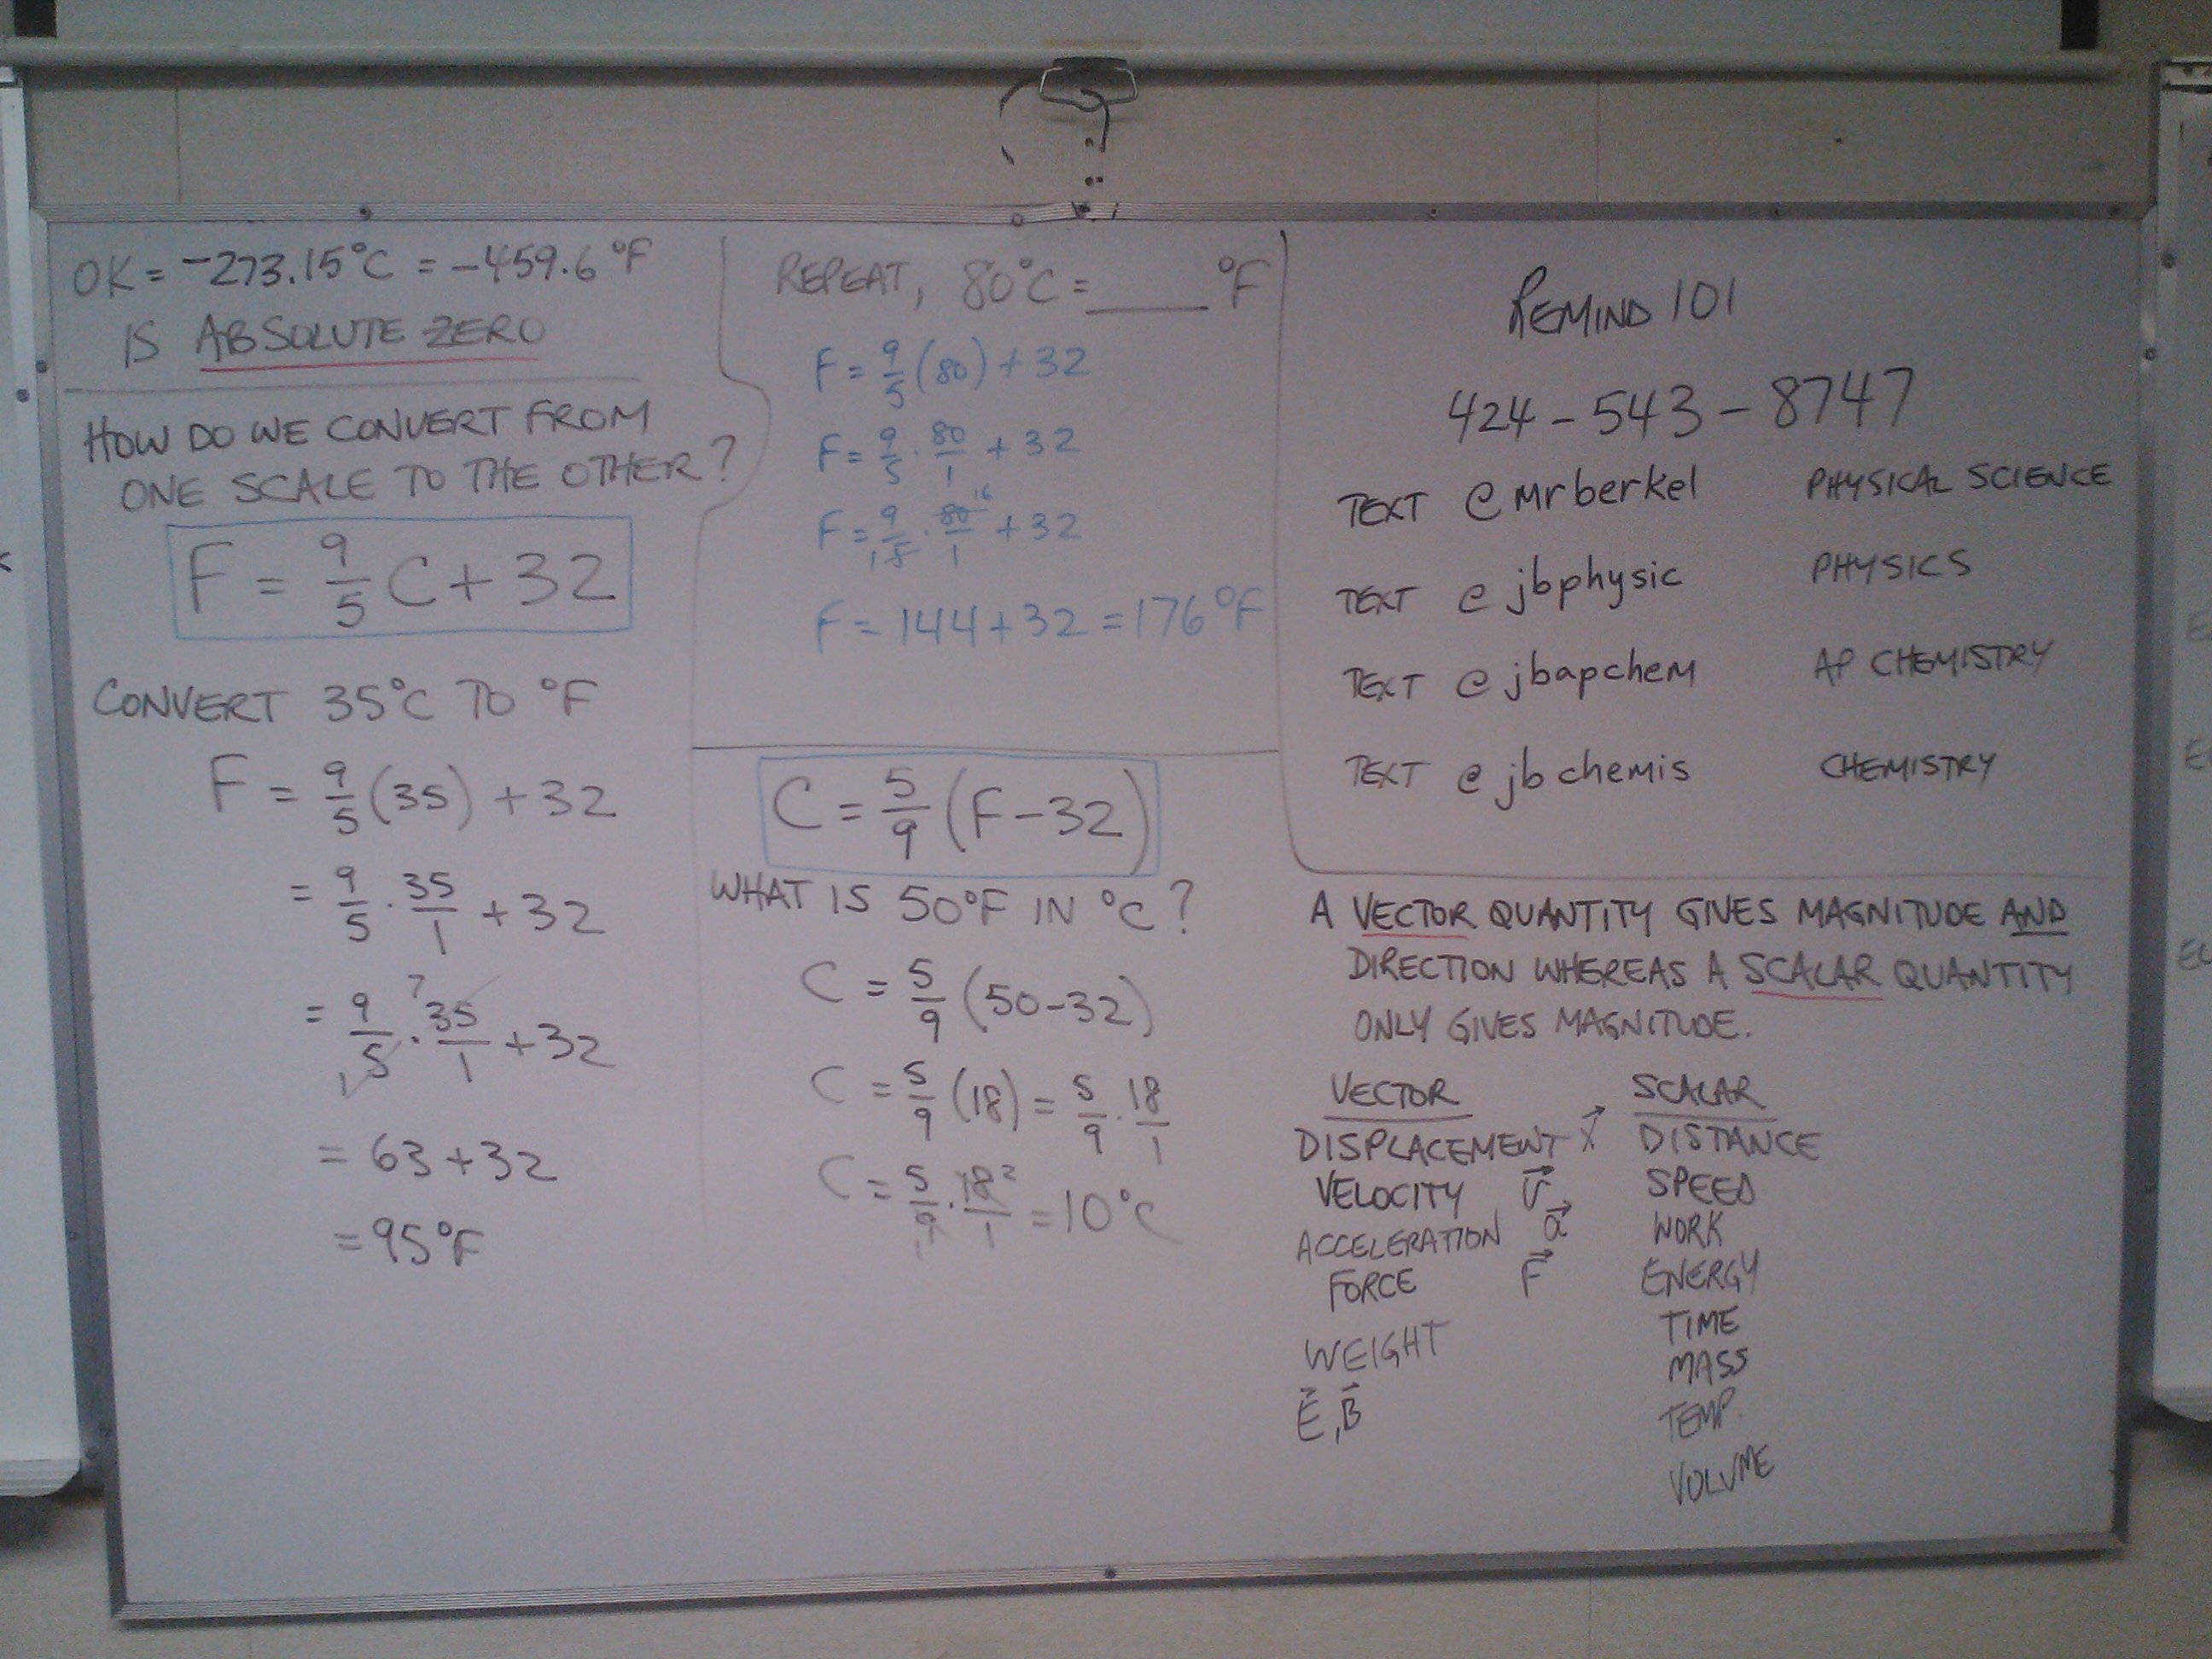 OK = -273.15°C = -459.6°F
IS ABSOLUTE ZERO
HOW DO WE CONVERT FROM
ONE SCALE TO THE OTHER?
F = 9/5 C + 32
CONVERT 35°C TO °F
F = 9/5 (35) + 32
= 9/5 · 35/1 + 32
= 9/5 1 · 35/1 7 + 32
= 63 + 32
= 95°F
REPEAT, 80°C = ____ °F
F = 9/5 (80) + 32
F = 9/5 · 80/1 + 32
F = 9/5 1 · 80/1 16 + 32
F = 144 + 32 = 176°F
C = 5/9 (F - 32)
WHAT IS 50°F IN °C?
C = 5/9 (50 - 32)
C = 5/9 (18) = 5/9 · 18/1
C = 5/9 1 · 18/1 2 = 10°C
REMIND 101
424-543-8747
TEXT @mrberkel PHYSICAL SCIENCE
TEXT @jbphysic PHYSICS
TEXT @jbapchem AP CHEMISTRY
TEXT @jbchemis CHEMISTRY
A VECTOR QUANTITY GIVES MAGNITUDE AND
DIRECTION WHEREAS A SCALAR QUANTITY
ONLY GIVES MAGNITUDE.
VECTOR SCALAR
DISPLACEMENT x⃗ DISTANCE
VELOCITY v⃗ SPEED
ACCELERATION a⃗ WORK
FORCE F⃗ ENERGY
TIME
WEIGHT MASS
E⃗, B⃗ TEMP.
VOLUME